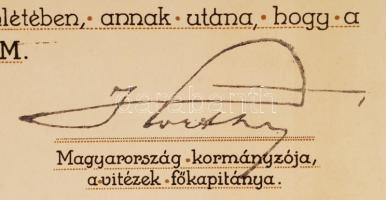 létében, • annak • utána, • hogy • a
M.
Horthy
Magyarország • kormányzója,
a • vitézek • főkapitánya.